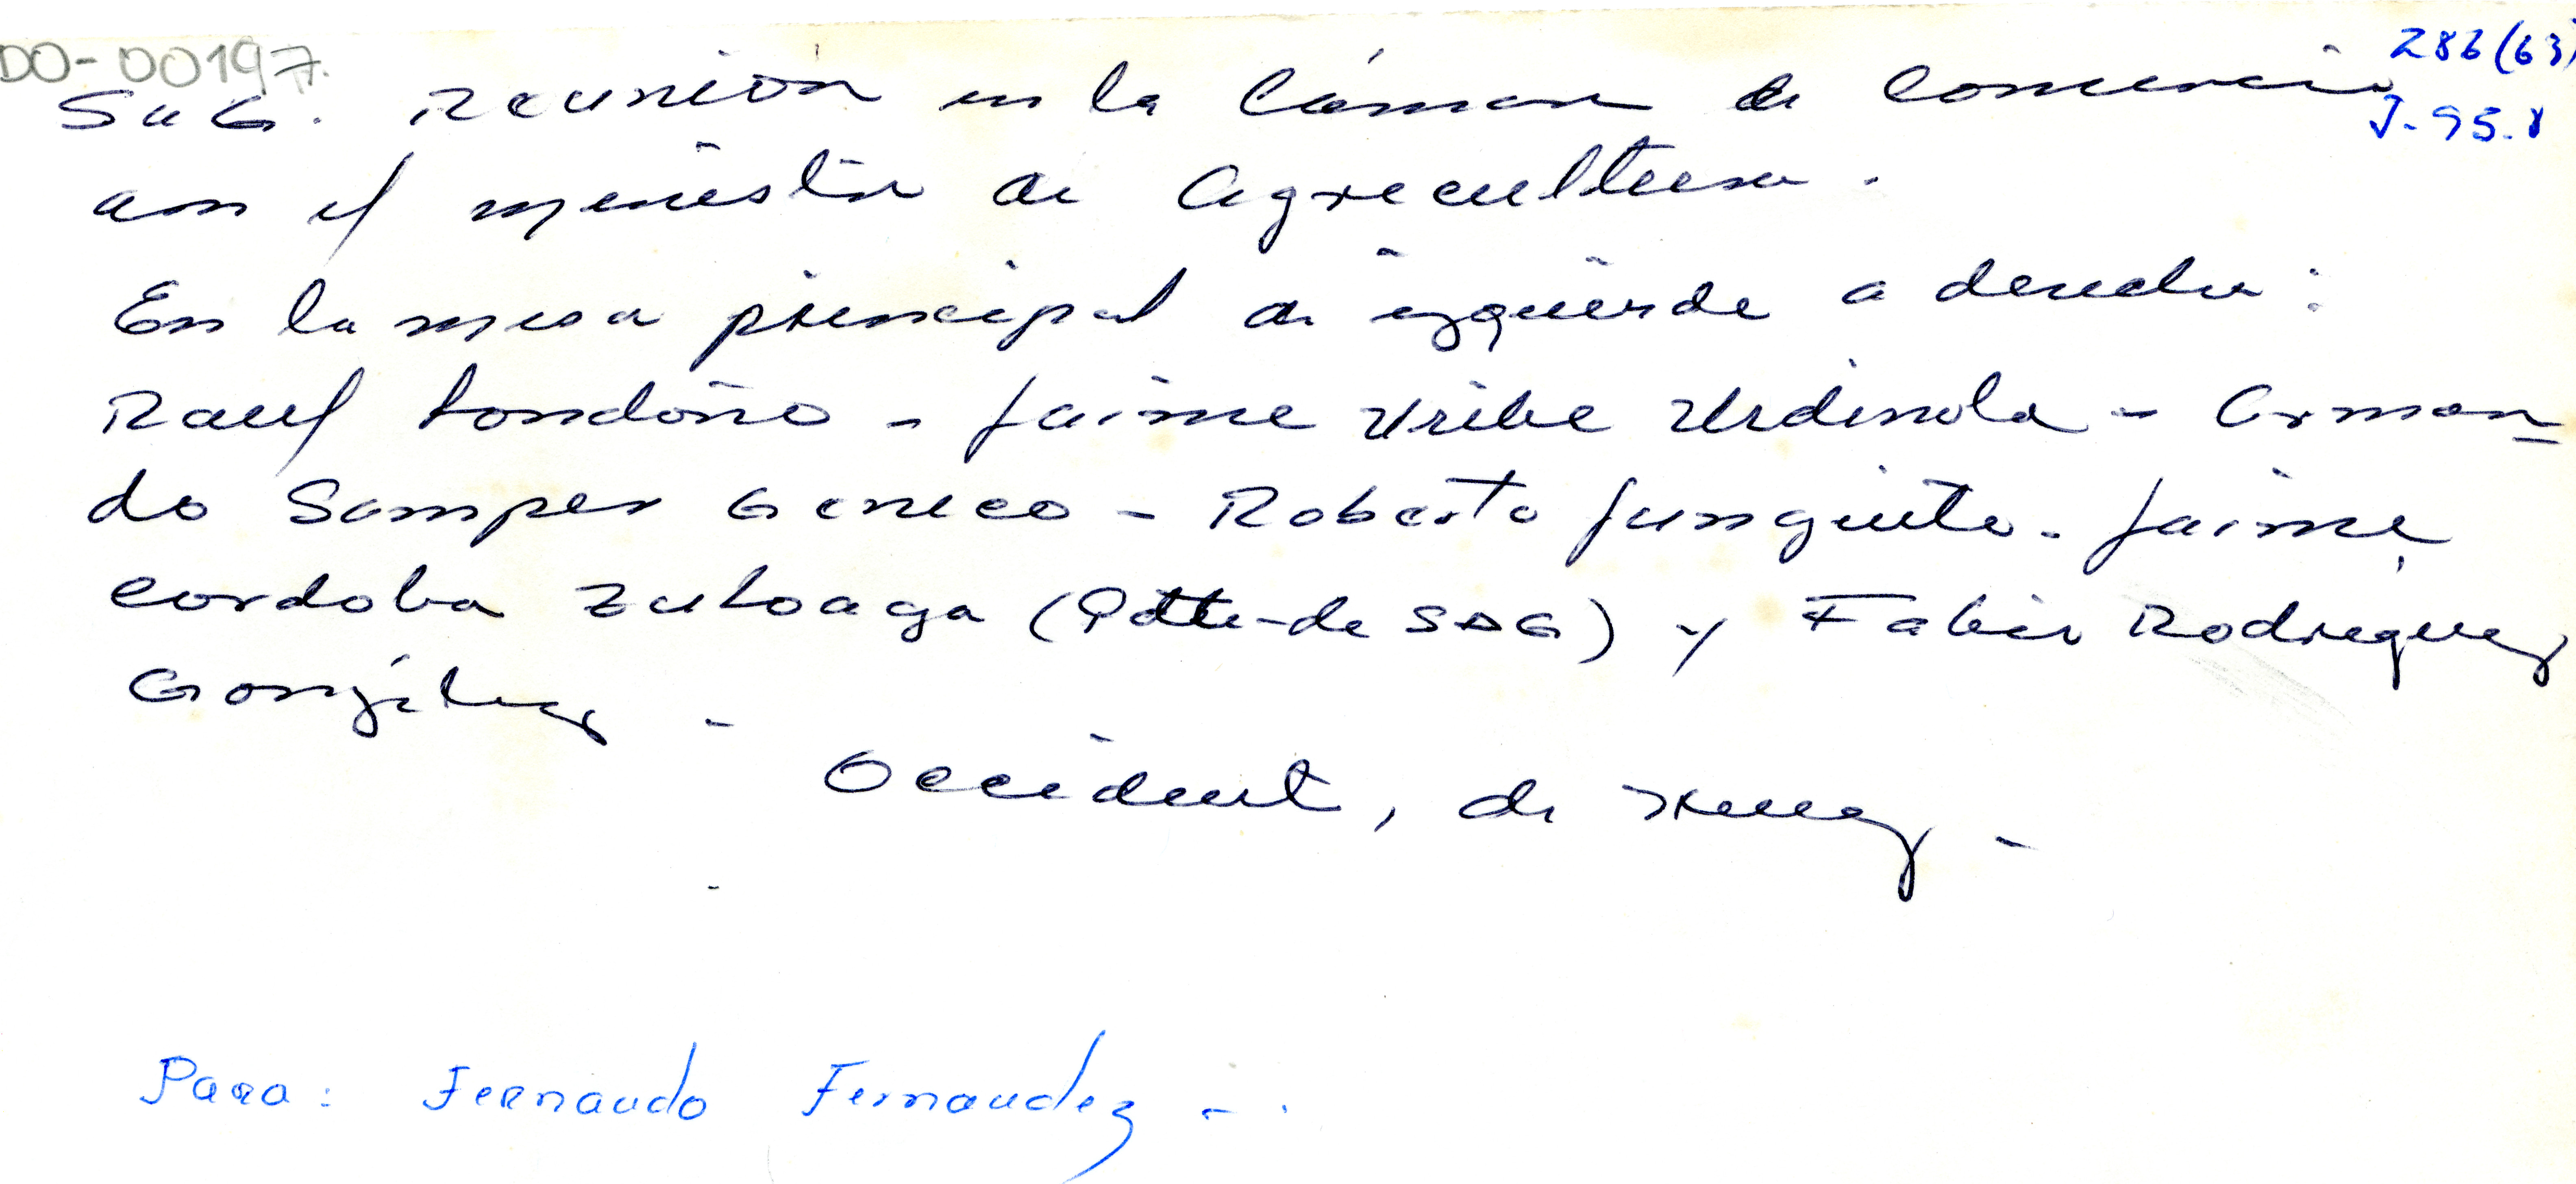 DO-00197.
286(63)
J-95.8
SAG. Reunión en la Cámara de Comercio
con el ministro de Agricultura.
En la mesa principal de izquierda a derecha:
Raul Londoño - Jaime Uribe Urdinola - Arman-
do Samper Gneco - Roberto Junguito - Jaime
Cordoba Zuloaga (Pdte-de SAG) y Fabio Rodriguez
González -
Occidente, de
Para: Fernando Fernandez -.